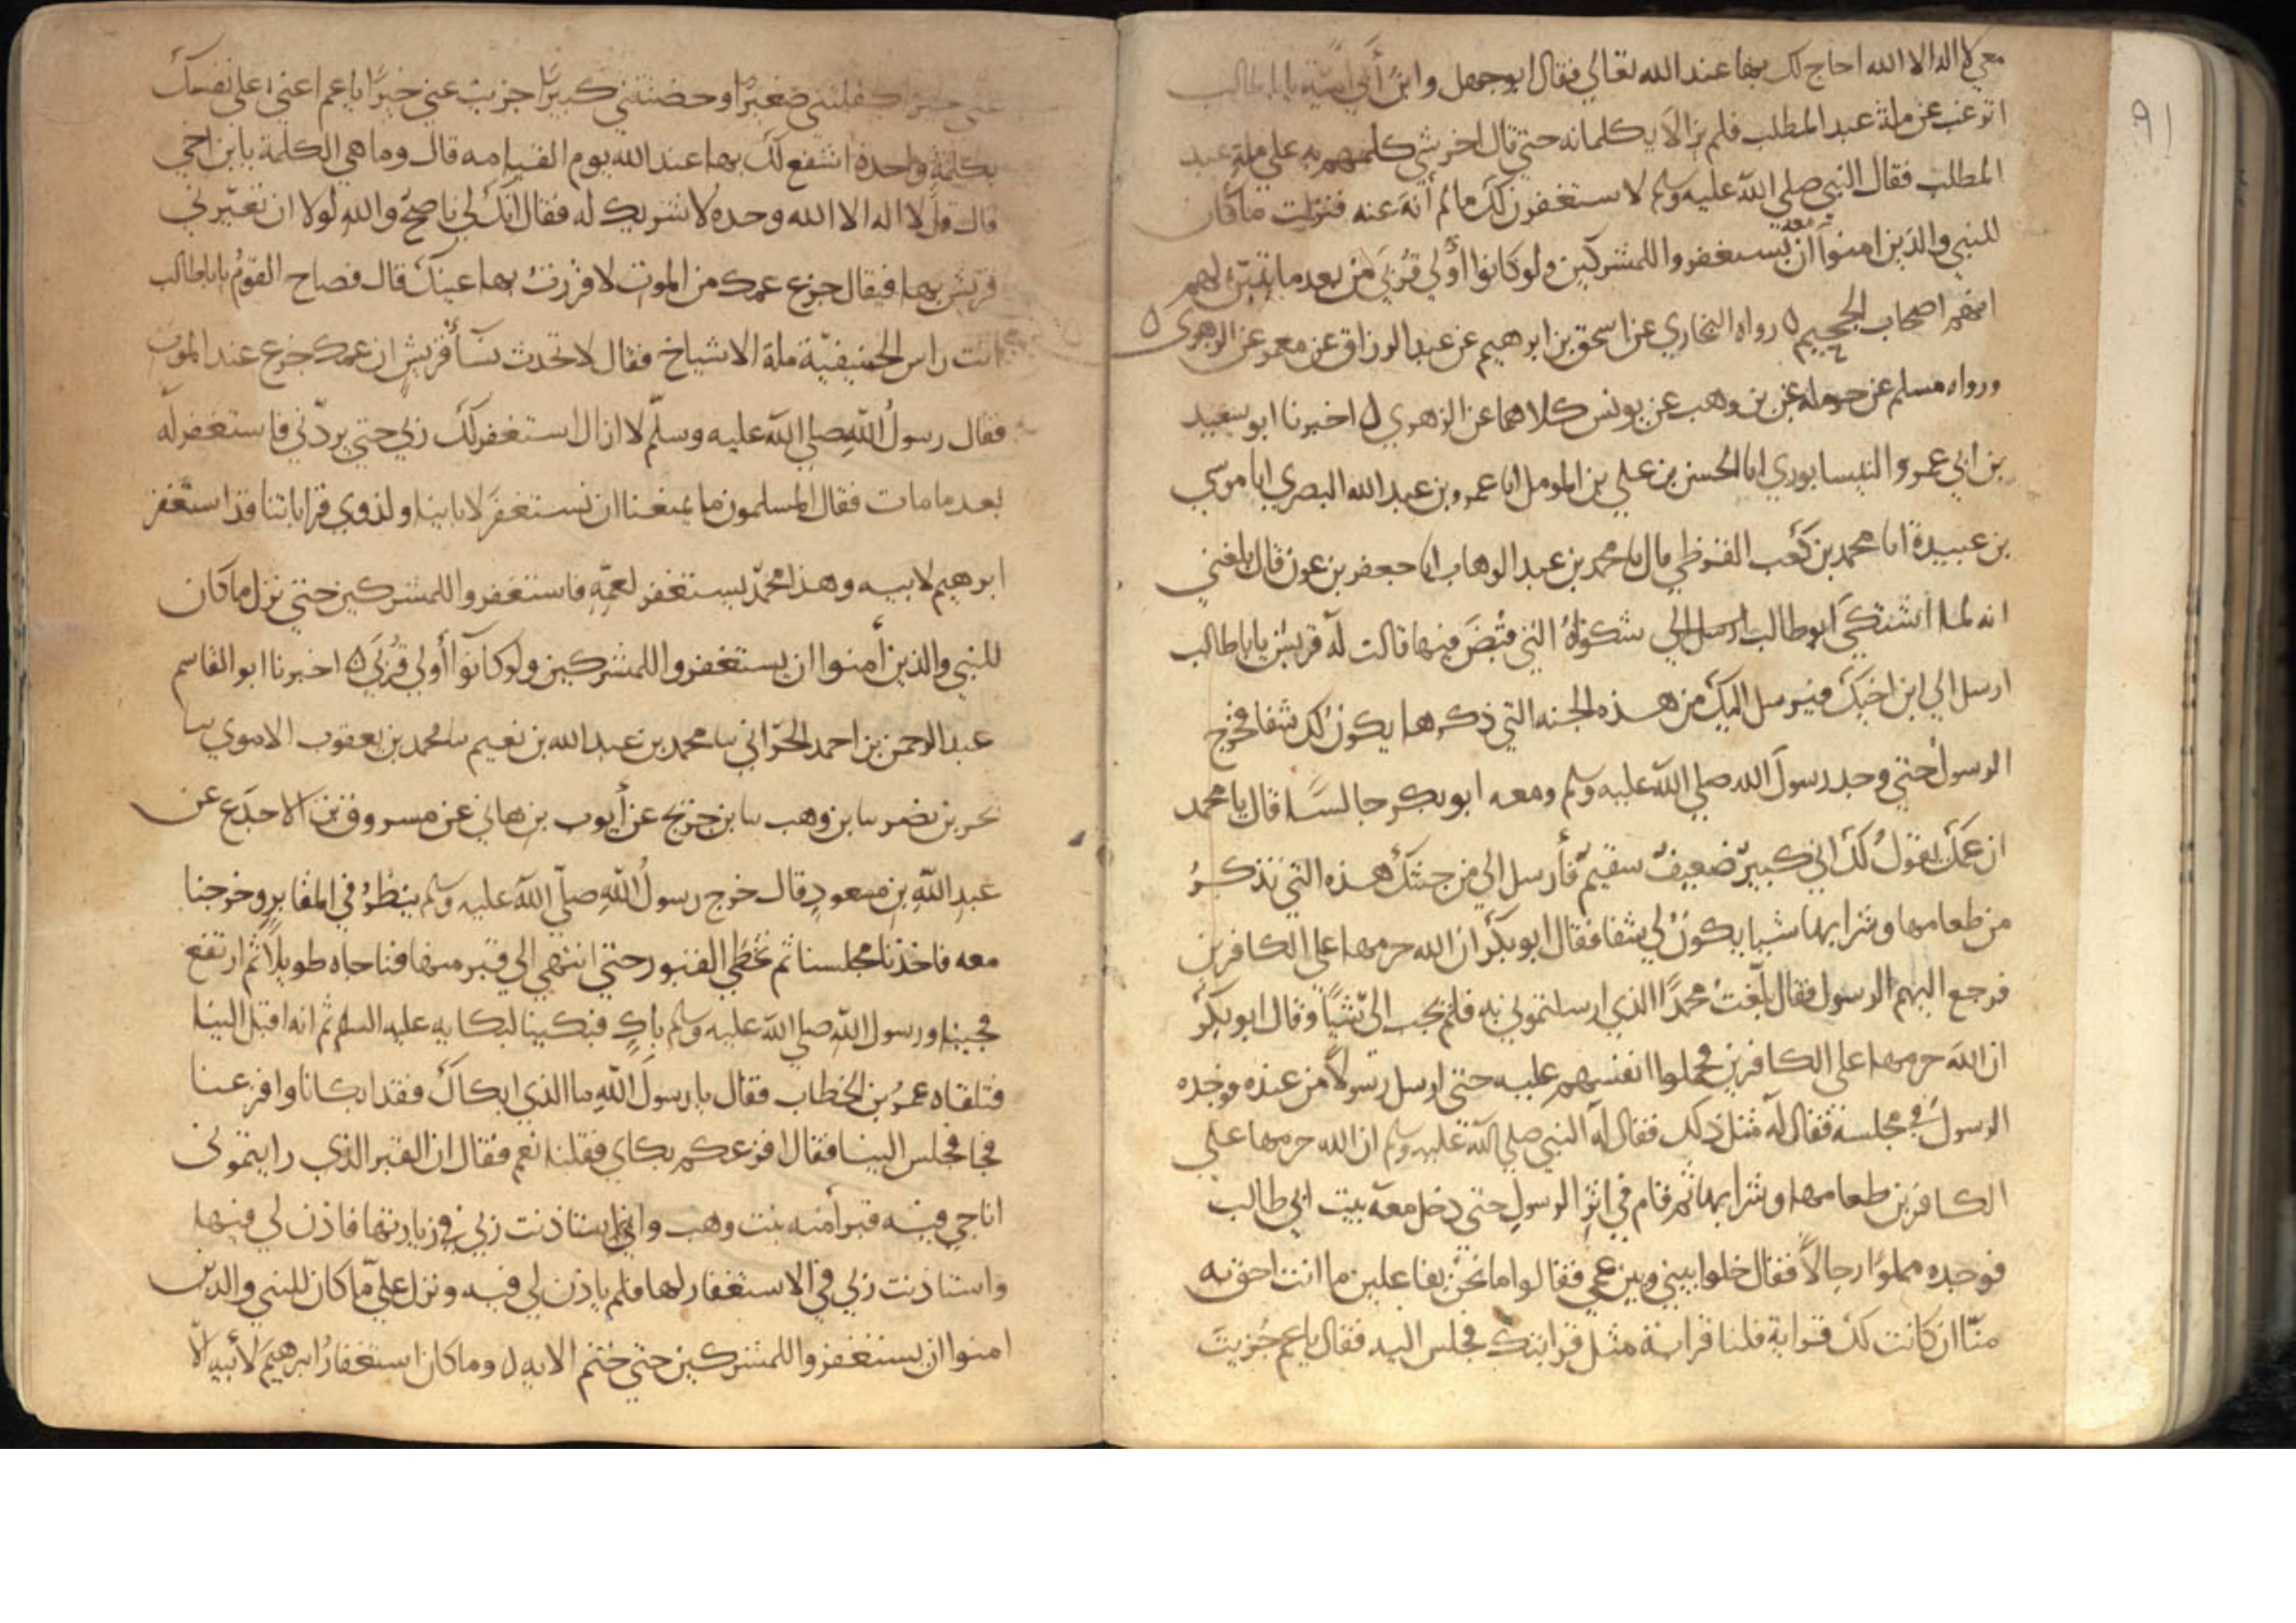 معي لا اله الا الله احاج لك بها عند الله تعالي فقال ابو جهل وابن أبي أمية يا ابا طالب
اترغب عن ملة عبد المطلب فلم يزالا يكلمانه حتي قال اخر شي كلمهم به علي ملة عبد
المطلب فقال النبي صلي الله عليه وسلم لاستغفرن لك ما لم أنه عنه فنزلت ما كان
للنبي والذين امنوا ان يستغفروا للمشركين ولو كانوا أولي قربي من بعد ما تبين لهم
انهم اصحاب الجحيم ٥ رواه البخاري عن اسحق بن ابرهيم عن عبد الرزاق عن معمر عن الزهري ٥
ورواه مسلم عن حرملة عن بن وهب عن يونس كلاهما عن الزهري ٥ اخبرنا ابو سعيد
بن ابي عمرو النيسابوري انا الحسن بن علي بن المومل انا عمرو بن عبد الله البصري انا موسي
بن عبيدة انا محمد بن كعب القرظي قال انا محمد بن عبد الوهاب انا جعفر بن عون قال بلغني
انه لما اشتكي ابو طالب شكواه التي قبض فيها قالت له قريش يا ابا طالب
ارسل الي ابن اخيك فيرسل اليك من هذه الجنه التي ذكرها يكون لك شفا فخرج
الرسول حتي وجد رسول الله صلي الله عليه وسلم ومعه ابو بكر جالسا قال يا محمد
ان عمك يقول لك اني كبير ضعيف سقيم فأرسل الي من جنتك هذه التي تذكر
من طعامها وشرابها شيا يكون لي شفا فقال ابو بكر ان الله حرمها علي الكافرين
فرجع اليهم الرسول فقال بلغت محمدا الذي ارسلتموني به فلم يحب الي شيا وقال ابو بكر
ان الله حرمها علي الكافرين فحملوا انفسهم عليه حتي ارسل رسولا من عنده فوجده
الرسول في مجلسه فقال له مثل ذلك فقال له النبي صلي الله عليه وسلم ان الله حرمها علي
الكافرين طعامها وشرابها ثم قام في اثر الرسول حتي دخل معه بيت ابي طالب
فوجده مملوا رجالا فقال خلوا بيني وبين عمي فقالوا ما نحن بفاعلين ما انت احق به
منا ان كانت لك قرابة فلنا قرابة مثل قرابتك فجلس اليه فقال يا عم جزيت
عني خيرا كفلتني صغيرا وحضنتني كبيرا جزيت عني خيرا يا عم اعني علي نفسك
بكلمة واحدة اشفع لك بها عند الله يوم القيامه قال وما هي الكلمة يا ابن اخي
قال قل لا اله الا الله وحده لا شريك له فقال انك لي ناصح والله لولا ان تعيرني
قريش بها فيقال جزع عمك من الموت لاقررت بها عينك قال فصاح القوم يا ابا طالب
انت راس الحنيفية ملة الاشياخ فقال لا تحدث نسآ قريش ان عمك جزع عند الموت
فقال رسول الله صلي الله عليه وسلم لا ازال استغفر لك ربي حتي يردني فاستغفر له
بعد ما مات فقال المسلمون ما يمنعنا ان نستغفر لابابنا ولذوي قراباتنا قد استغفر
ابرهيم لابيه وهذا محمد يستغفر لعمه فاستغفروا للمشركين حتي نزل ما كان
للنبي والذين أمنوا ان يستغفروا للمشركين ولو كانوا أولي قربي ٥ اخبرنا ابو القاسم
عبد الرحمن بن احمد الحراني ثنا محمد بن عبد الله بن نعيم ثنا محمد بن يعقوب الاموي ثنا
بحر بن نصر ثنا بن وهب ثنا بن جريج عن أيوب بن هاني عن مسروق بن الاجدع عن
عبد الله بن مسعود قال خرج رسول الله صلي الله عليه وسلم ينظر في المقابر وخرجنا
معه فاخذنا مجلسنا ثم تخطي القبور حتي انتهي الي قبر منها فناجاه طويلا ثم ارتفع
نحيب رسول الله صلي الله عليه وسلم باك فبكينا لبكايه عليه السلم ثم انه اقبل الينا
فتلقاه عمر بن الخطاب فقال يا رسول الله ما الذي ابكاك فقد ابكانا وافزعنا
فجا فجلس الينا فقال افزعكم بكاي فقلنا نعم فقال ان القبر الذي رايتموني
اناجي فيه قبر أمنه بنت وهب واني استاذنت ربي في زيارتها فاذن لي فيها
واستاذنت ربي في الاستغفار لها فلم ياذن لي فيه ونزل علي ما كان للنبي والذين
امنوا ان يستغفروا للمشركين حتي ختم الايه ٥ وما كان استغفار ابرهيم لأبيه الا